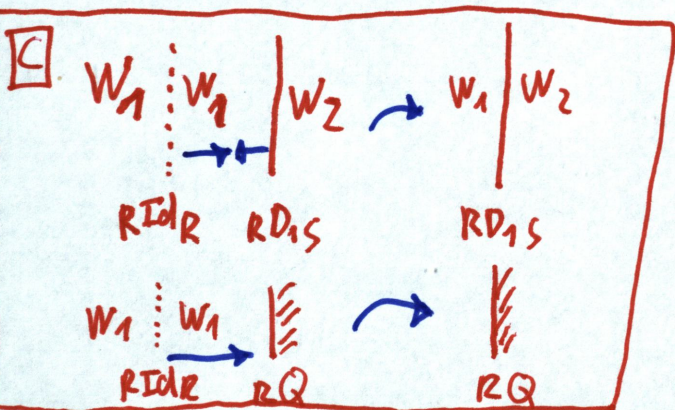 C
W₁ W₁ W₂ W₁ W₂
RIdR RD₁S RD₁S
W₁ W₁
RIdR RQ RQ